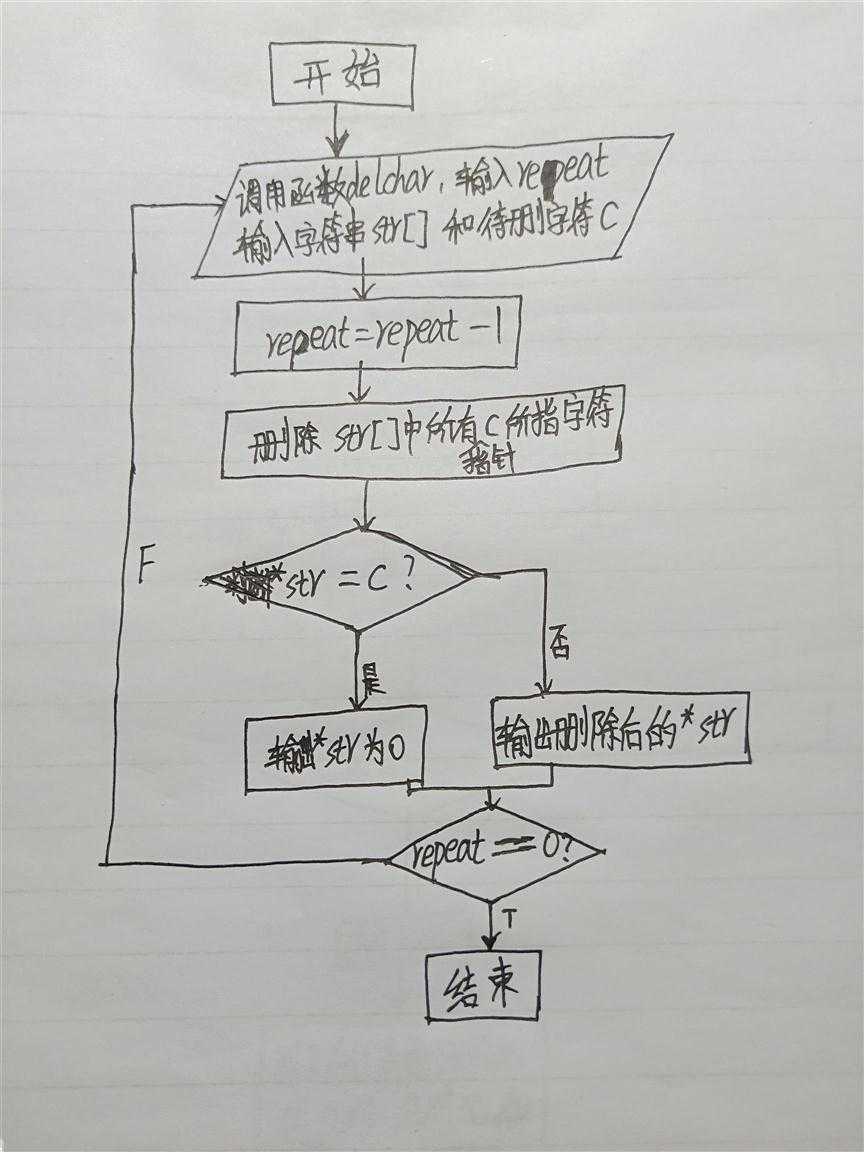 开始
调用函数delchar，输入repeat
输入字符串str[] 和待删字符C
repeat=repeat-1
删除 str[]中所有C所指字符
指针
F
*str=C?
是
否
输出*str为0
输出删除后的*str
repeat==0?
T
结束